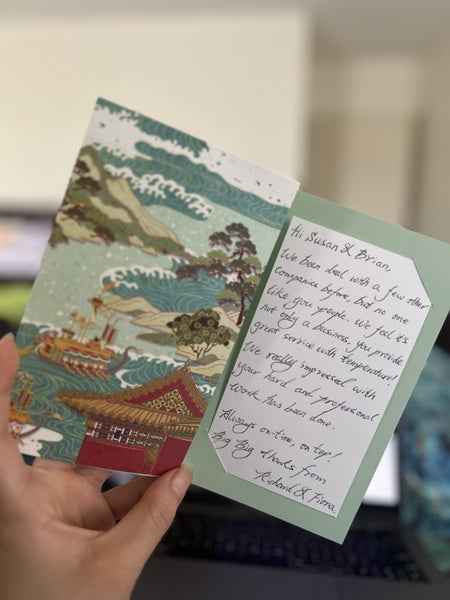 Hi Susan & Brian,
We been deal with a few other
companies before, but no one
like you people. We feel it's
not only a business, you provide
great service with temperature!
We really impressed with
your hard and professional
work has been done.
Always on-time, on top!
Big Big thanks from
Richard & Fiona.